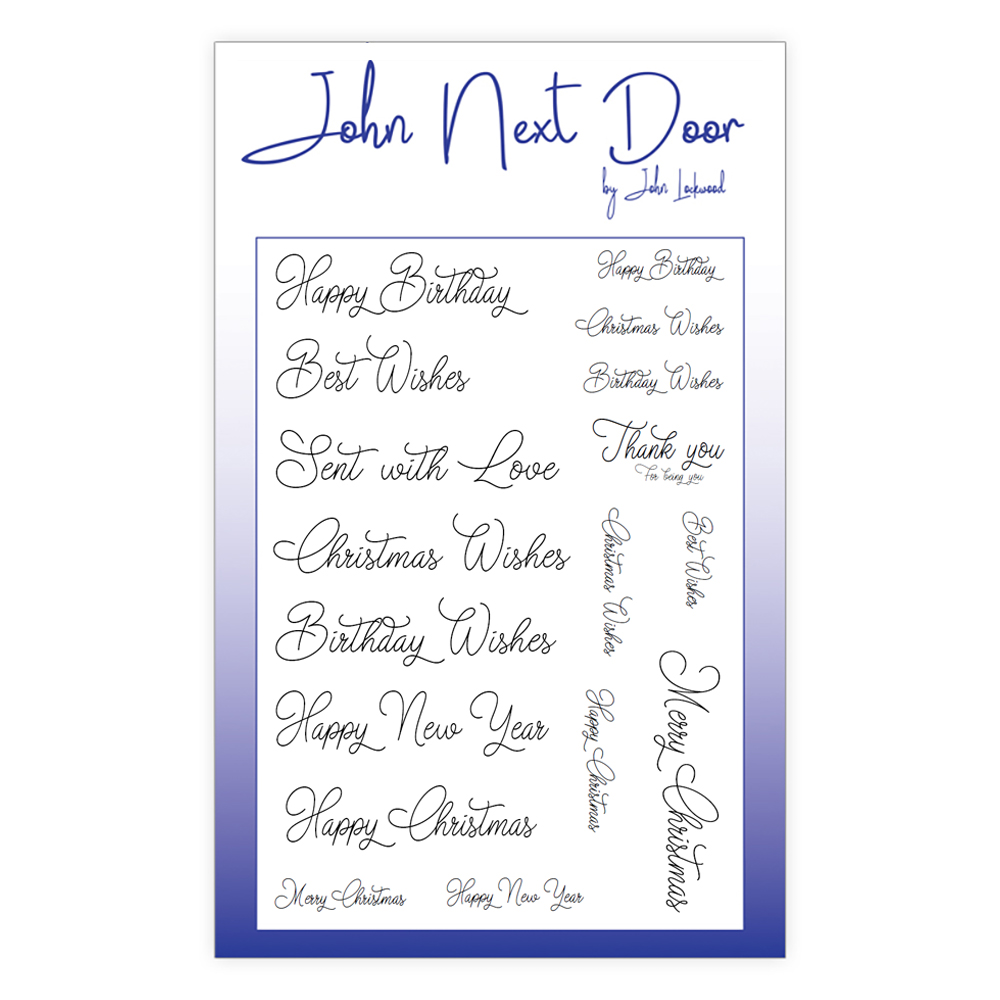 John Next Door
by John Lockwood
Happy Birthday
Best Wishes
Sent with Love
Christmas Wishes
Birthday Wishes
Happy New Year
Happy Christmas
Merry Christmas
Happy New Year
Happy Birthday
Christmas Wishes
Birthday Wishes
Thank you
For being you
Christmas Wishes
Best Wishes
Happy Christmas
Merry Christmas